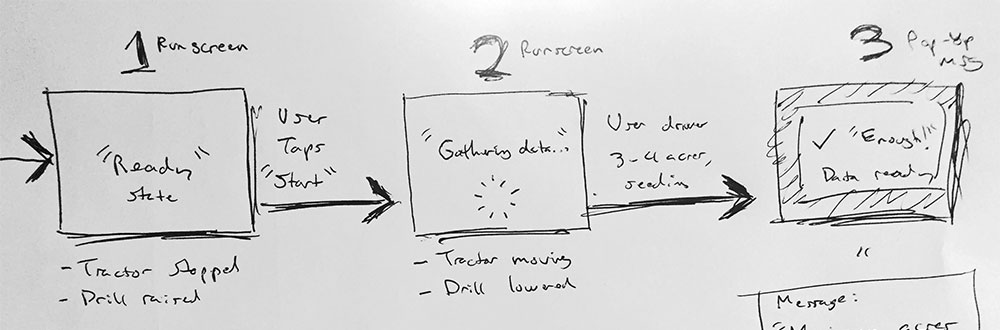 1 Runscreen
"Ready"
state
- Tractor stopped
- Drill raised
User
Taps
"Start"
2 Runscreen
"Gathering data..."
- Tractor moving
- Drill lowered
User drives
3-4 acres,
seeding
3 Pop-Up
MSG
✓ "Enough!"
Data ready
"
Message:
acres